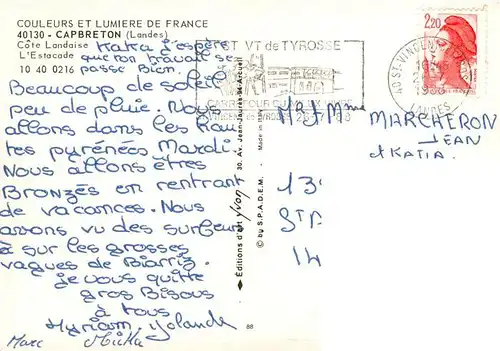 COULEURS ET LUMIERE DE FRANCE
40130 - CAPBRETON (Landes)
Côte Landaise
L'Estacade
10 40 0216
Kaka j'espère
que ton travail se
passe bien.
Beaucoup de soleil
peu de pluie. Nous
allons dans les hau
tes pyrénées Mardi.
Nous allons êtres
Bronzés en rentrant
de vacances. Nous
avons vu des surfeurs
à sur les grosses
vagues de Biarriz.
je vous quitte
gros Bisous
à tous
Myriam. Yolande
Marc
88
Editions d'art yvon
30, Av. Jean-Jaurès
© by S.P.A.D.E.M.
ST VT de TYROSSE
ST-VINCENT
LANDES
2,20
Mr Mme
MARCHERON
JEAN
et KATIA.
13
ST
14